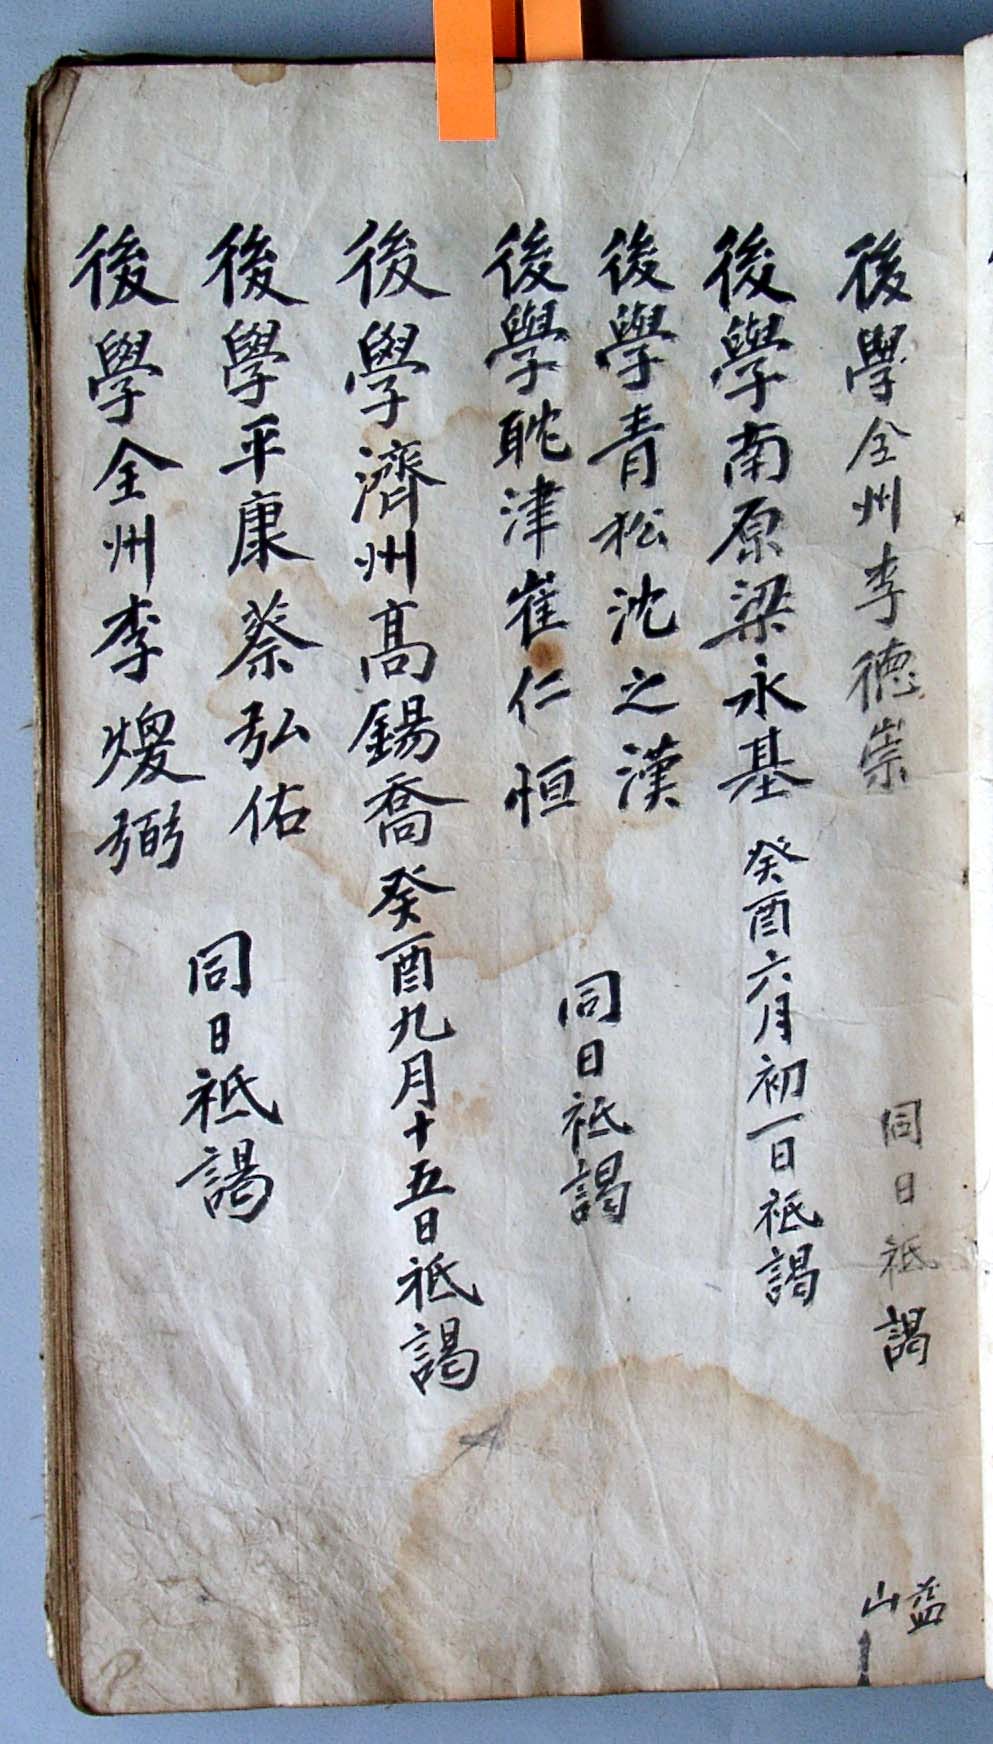 後學全州李德崇
同日祗謁
益山
後學南原梁永基 癸酉六月初一日祗謁
後學青松沈之漢
後學耽津崔仁恒
同日祗謁
後學濟州高錫喬 癸酉九月十五日祗謁
後學平康蔡弘佑
後學全州李煖弼
同日祗謁